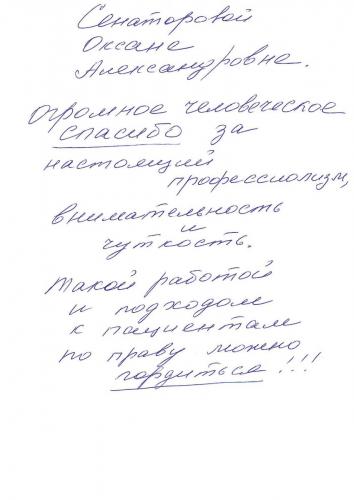 Сенаторовой
Оксане
Александровне.
огромное человеческое
спасибо за
настоящий
профессиолизм,
внимательность
и
чуткость.
Такой работой
и подходом
к пациентам
по праву можно
гордиться!!!